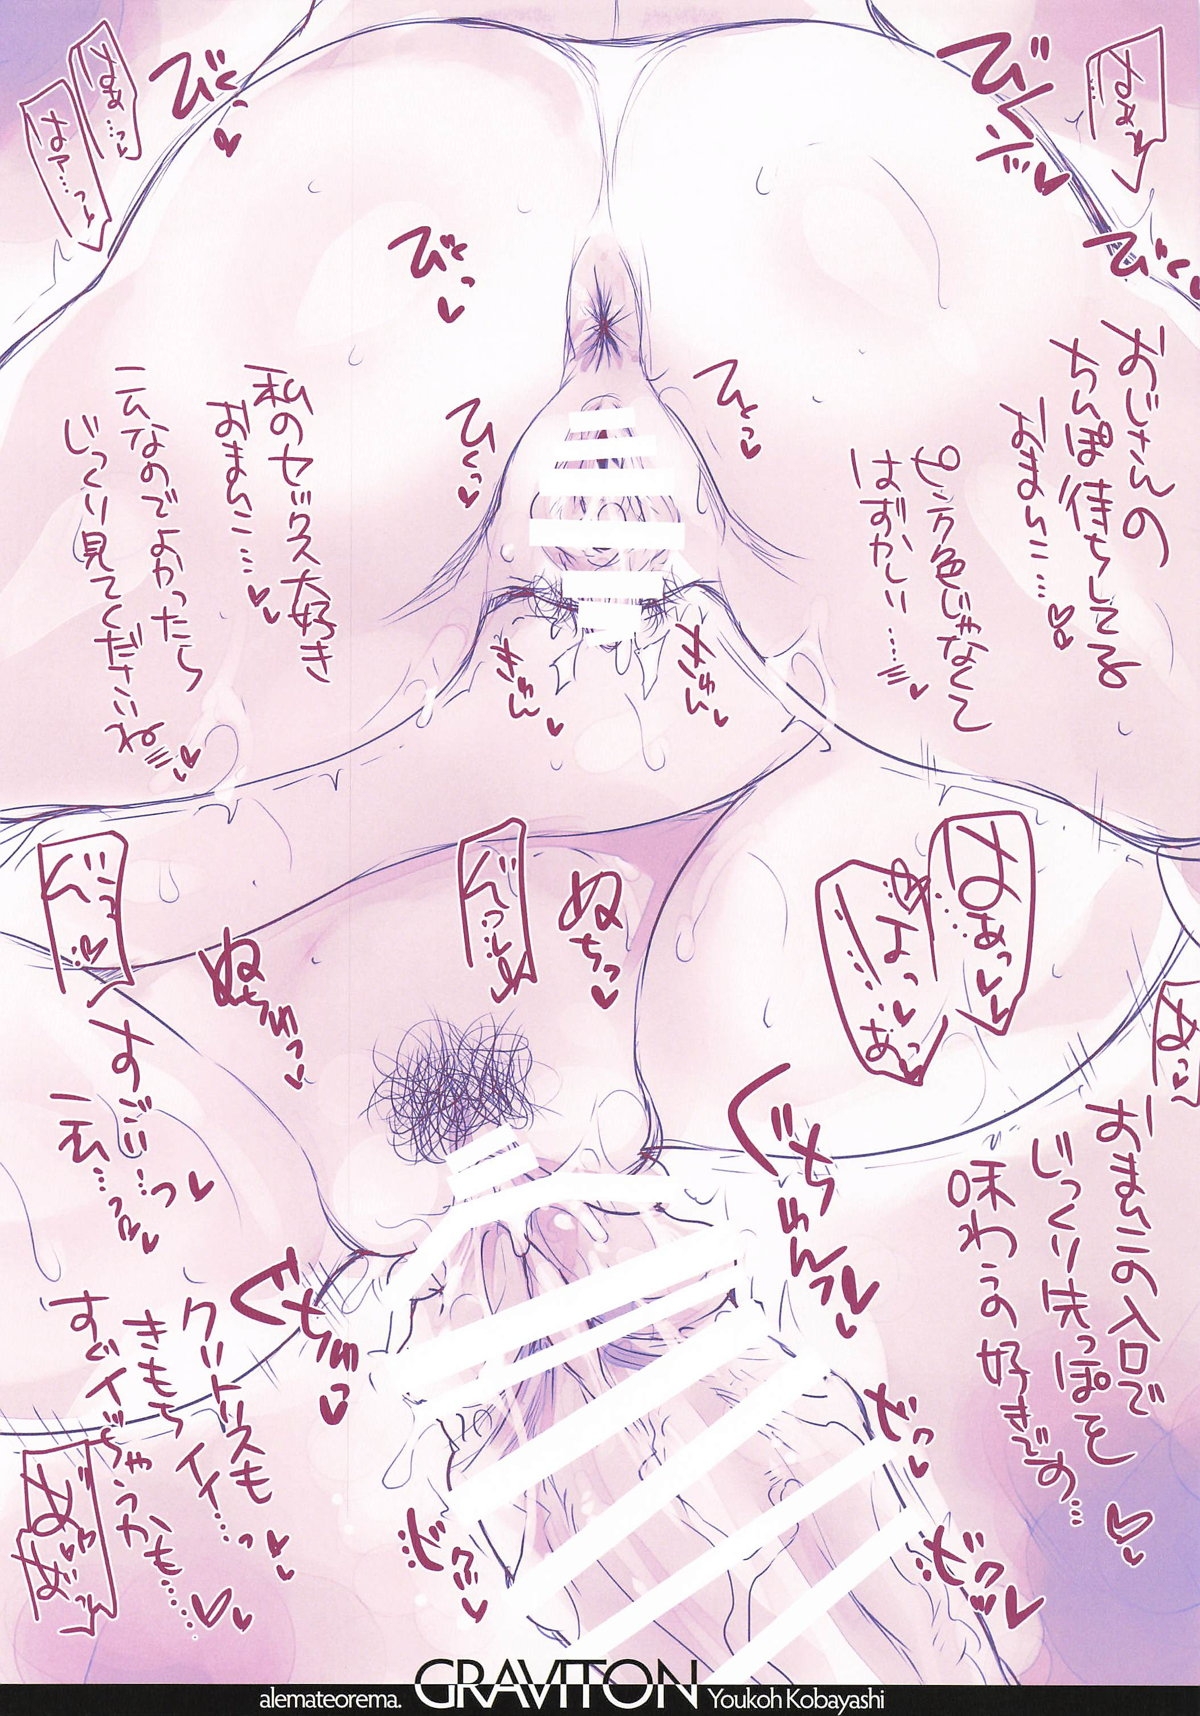 はぁ…っ
はァ…っ
びくっ
びくっ
びくっ
おじさんの
ちんぽ待ちしてる
おまんこ…
ピンク色じゃなくて
はずかしい…
ひくっ
ひくっ
私のセックス大好き
おまんこ…
こんなのでよかったら
じっくり見てくださいね
きゅん
きゅん
はぁっ
ぬちっ
おまんこの入口で
じっくり先っぽを
味わうの好きなの…
ぐちゅんっ
すごい…っ
私…っ
クリトリスも
きもちイイ…っ
すぐイっちゃうかも…
ぐちゅっ
alemateorema. GRAVITON Youkoh Kobayashi